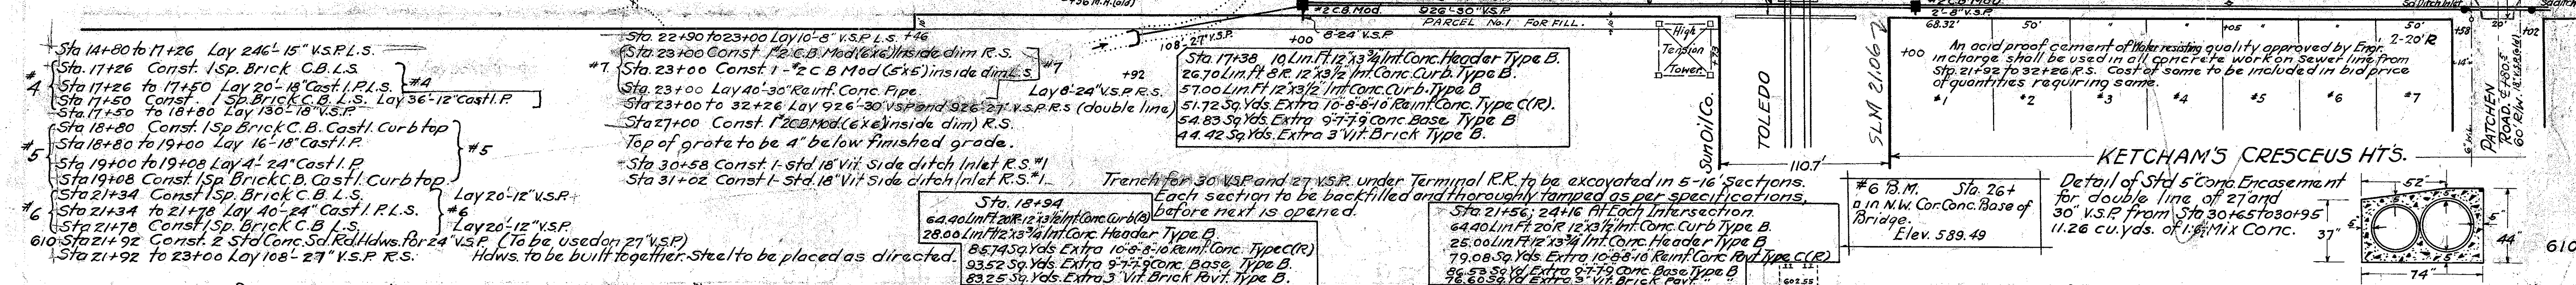 #2 C.B. Mod. 926'-30" V.S.P.
PARCEL No.1 FOR FILL.
108'-27" V.S.P. +00 8'-24" V.S.P.
Sta 14+80 to 17+26 Lay 246'-15" V.S.P. L.S.
Sta. 17+26 Const. 1 Sp. Brick C.B. L.S.
#4 Sta 17+26 to 17+50 Lay 20'-18" Cast I.P. L.S. #4
Sta 17+50 Const. 1 Sp. Brick C.B. L.S. Lay 36'-12" Cast I.P.
Sta. 17+50 to 18+80 Lay 130'-18" V.S.P.
Sta 18+80 Const. 1 Sp Brick C.B. Cast I. Curb top
#5 Sta 18+80 to 19+00 Lay 16'-18" Cast I.P. #5
Sta 19+00 to 19+08 Lay 4'-24" Cast I.P.
Sta 19+08 Const. 1 Sp. Brick C.B. Cast I. Curb top
Sta 21+34 Const. 1 Sp. Brick C.B. L.S. Lay 20'-12" V.S.P.
#6 Sta 21+34 to 21+78 Lay 40'-24" Cast I.P. L.S. #6
Sta 21+78 Const 1 Sp. Brick C.B. L.S. Lay 20'-12" V.S.P.
610 Sta 21+92 Const. 2 Std Conc. Sd. Rd. Hdws. for 24" V.S.P. (To be used on 27" V.S.P.)
Sta 21+92 to 23+00 Lay 108'-27" V.S.P. R.S. Hdws. to be built together. Steel to be placed as directed.
Sta. 22+90 to 23+00 Lay 10'-8" V.S.P. L.S. +46
Sta. 23+00 Const 1-#2 C.B. Mod (6'x6') inside dim R.S.
#7 Sta. 23+00 Const. 1-#2 C B Mod (5'x5') inside dim L.S. #7
Sta. 23+00 Lay 40'-30" Reinf. Conc. Pipe. Lay 8'-24" V.S.P. R.S.
Sta 23+00 to 32+26 Lay 926'-30" V.S.P. and 926'-27" V.S.P. R.S (double line)
Sta 27+00 Const. 1-#2 C.B. Mod. (6'x6' inside dim) R.S.
Top of grate to be 4" below finished grade.
Sta 30+58 Const. 1-Std. 18" Vit. Side ditch Inlet R.S. #1
Sta 31+02 Const 1-Std. 18" Vit Side ditch Inlet R.S. #1
+92
Sta. 17+38 10 Lin. Ft. 12"x3¾" Int Conc. Header Type B.
26.70 Lin. ft 8'R. 12"x3½" Int. Conc. Curb. Type B.
57.00 Lin. Ft 12"x3½" Int. Conc. Curb. Type B
51.72 Sq. Yds. Extra 10-8-8-10 Reinf. Conc. Type C(R).
54.83 Sq Yds. Extra 9-7-7-9 Conc Base Type B
44.42 Sq Yds. Extra 3" Vit. Brick Type B.
Trench for 30" V.S.P. and 27" V.S.P. under Terminal R.R. to be excavated in 5-16' Sections.
Each section to be backfilled and thoroughly tamped as per specifications,
before next is opened.
Sta. 18+94
64.40 Lin Ft 20'R 12"x3½" Int Conc. Curb (B)
28.00 Lin Ft 12"x3¾" Int Conc. Header Type B.
85.74 Sq. Yds Extra 10-8-8-10 Reinf Conc. Type C(R)
93.52 Sq. Yds. Extra 9-7-7-9 Conc. Base Type B.
83.25 Sq. Yds. Extra 3" Vit. Brick Pavt. Type B.
Sta. 21+56; 24+16 At Each Intersection.
64.40 Lin Ft. 20'R 12"x3½" Int. Conc. Curb Type B.
25.00 Lin Ft 12"x3¾" Int. Conc. Header Type B.
79.08 Sq. Yds Extra 10-8-8-10 Reinf Conc Pavt Type C (R)
86.53 Sq Yd Extra 9-7-7-9 Conc. Base Type B
76.60 Sq. Yd Extra 3" Vit. Brick Pavt. " "
602.55
High
Tension
Tower
+73
Sun Oil Co.
TOLEDO
110.7'
SLM 21.06
#2 C.B. Mod
2'-8" V.S.P.
68.32' 50' " " +05 " " 50'
2-20'R
+00 An acid proof cement of Water resisting quality approved by Engr.
in charge shall be used in all concrete work on sewer line from
Sta. 21+92 to 32+26 R.S. Cost of same to be included in bid price
of quantities requiring same.
#1 #2 #3 #4 #5 #6 #7
KETCHAM'S CRESCEUS HTS.
Sd Ditch Inlet
+58
20'
+02
PATCHEN
ROAD
#6 B.M. Sta. 26+
□ in N.W. Cor. Conc. Base of
Bridge.
Elev. 589.49
Detail of Std 5" Conc. Encasement
for double line of 27" and
30" V.S.P. from Sta 30+65 to 30+95
11.26 cu. yds. of 1:6½ Mix Conc.
52"
37"
44"
74"
610